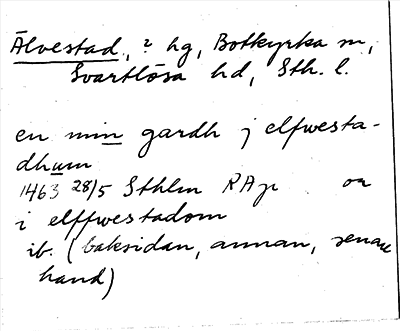 Älvestad, ? hg, Botkyrka sn,
Svartlösa hd, Sth. l.
en min gardh j elfwesta-
dhum
1463 28/5 Sthlm RAp or
i elffwestadom
ib. (baksidan, annan, senare
hand)